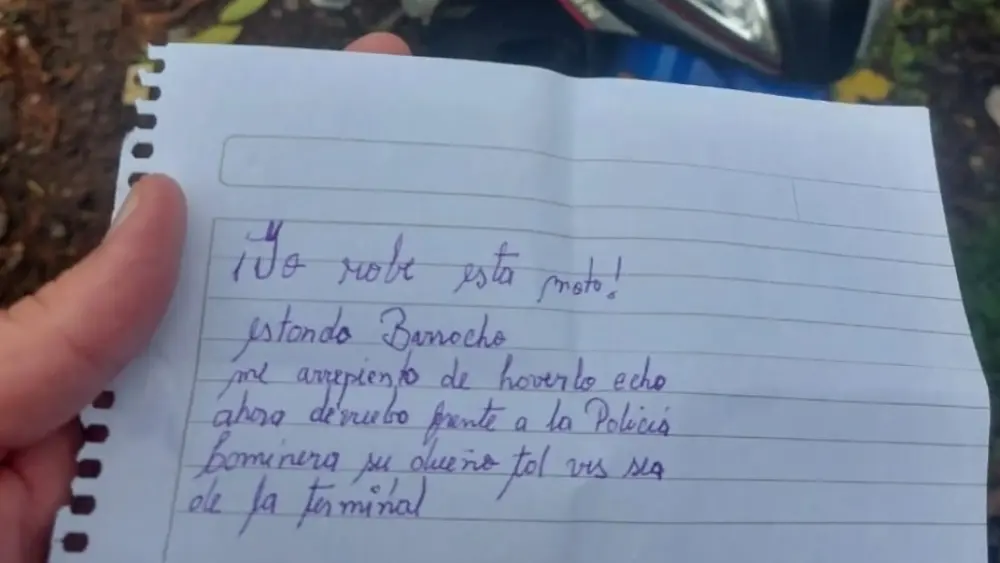 ¡Yo robe esta moto!
estondo Borrocho
me arrepiento de hoverlo echo
ahora devuebo frente a la Policia
Cominera su dueño tol ves sea
de la terminal